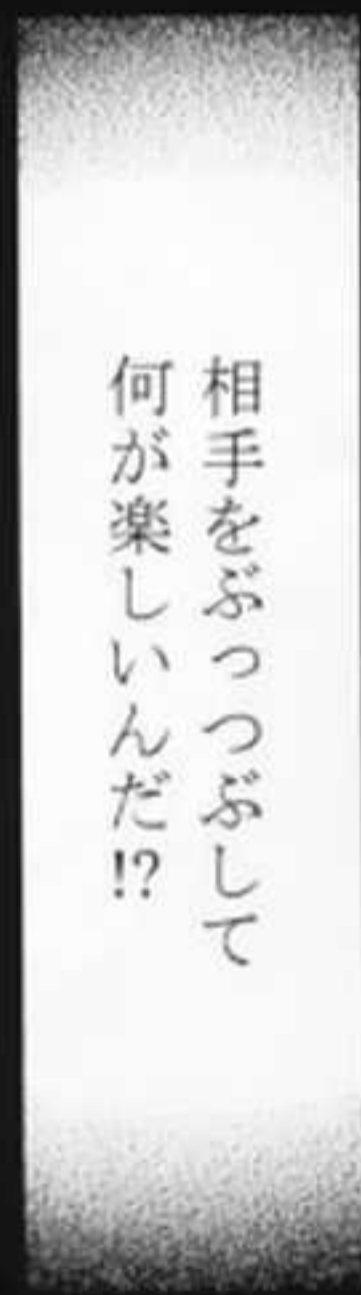 相手をぶっつぶして
何が楽しいんだ!?